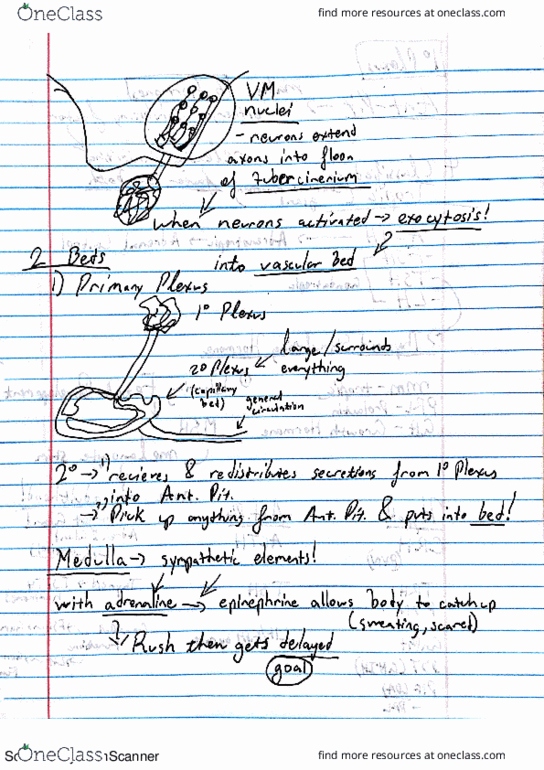 OneClass
find more resources at oneclass.com
VM
nuclei
- neurons extend
axons into floor
of tubercinerium
when neurons activated → exocytosis!
2 Beds
into vascular bed
1) Primary Plexus
1° Plexus
large/surrounds
everything
2° Plexus
(capillary
bed)
general
circulation
2° → 1) recieves & redistributes secretions from 1° Plexus
into Ant. Pit.
→ 2) Pick up anything from Ant. Pit & puts into bed!
Medulla → sympathetic elements!
with adrenaline → epinephrine allows body to catchup
(sweating, scared)
Rush then gets delayed
goal
OneClass
Scanner
find more resources at oneclass.com